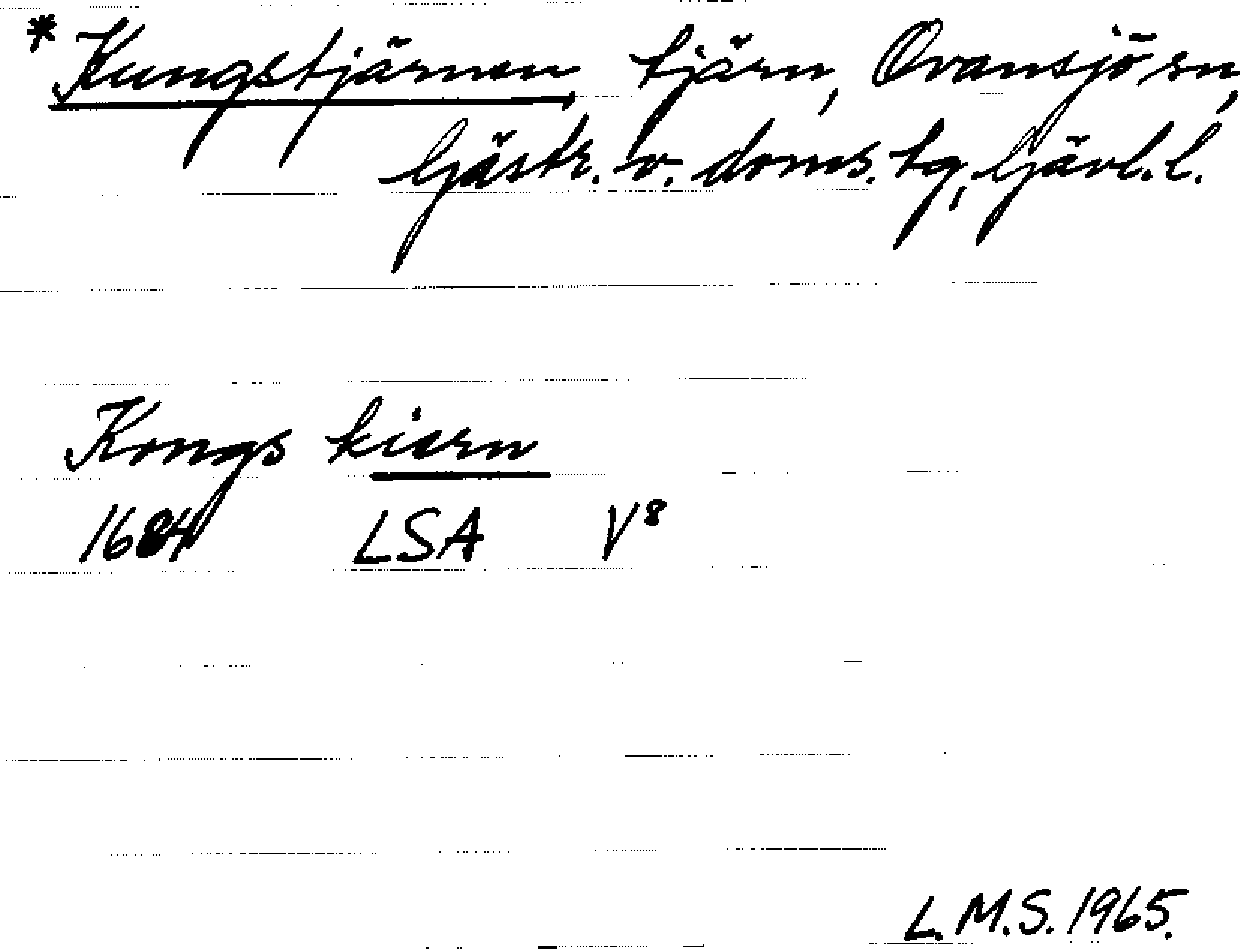 * Kungstjärnen, tjärn, Ovansjö sn,
Gästr. v. doms. tg, Gävl. l.
Kongs kiern
1684 LSA V⁸
L.M.S. 1965.